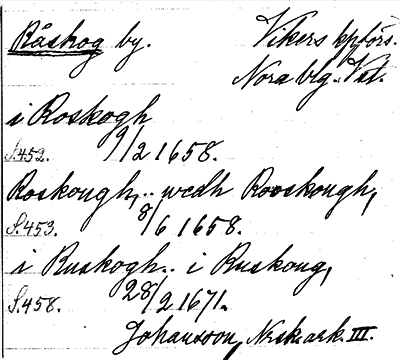 Råskog by. Vikers kpförs.
Nora blg. Vstl.
i Roskogh
S.452. 9/2 1658.
Roskough,.. wedh Rooskough,
S.453. 8/6 1658.
i Ruskogh.. i Ruskoug,
S.458. 28/2 1671.
Johansson, Norsk. ark. III.